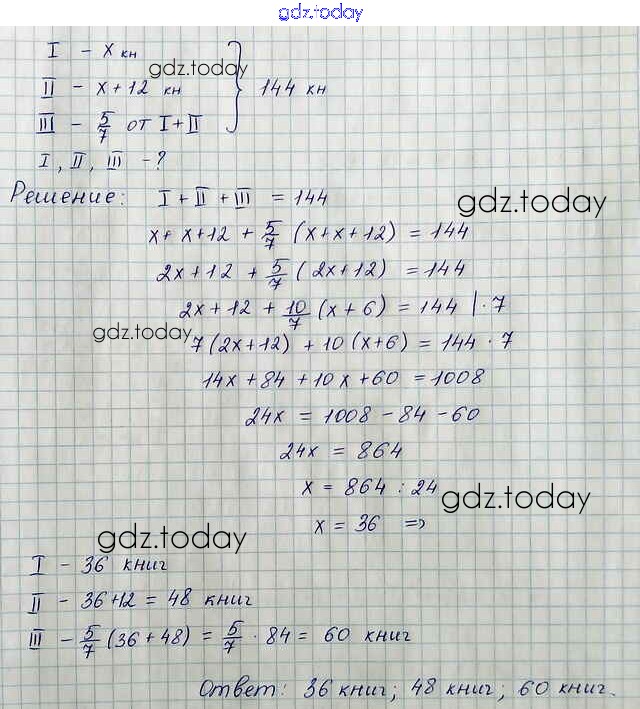 gdz.today
I – x кн
gdz.today
II – x + 12 кн } 144 кн
III – 5/7 от I + II
I, II, III – ?
Решение: I + II + III = 144
gdz.today
x + x + 12 + 5/7 (x + x + 12) = 144
2x + 12 + 5/7 (2x + 12) = 144
2x + 12 + 10/7 (x + 6) = 144 | · 7
gdz.today
7 (2x + 12) + 10 (x + 6) = 144 · 7
14x + 84 + 10x + 60 = 1008
24x = 1008 – 84 – 60
24x = 864
x = 864 : 24
gdz.today
x = 36 =>
gdz.today
I – 36 книг
II – 36 + 12 = 48 книг
III – 5/7 (36 + 48) = 5/7 · 84 = 60 книг
Ответ: 36 книг; 48 книг; 60 книг.